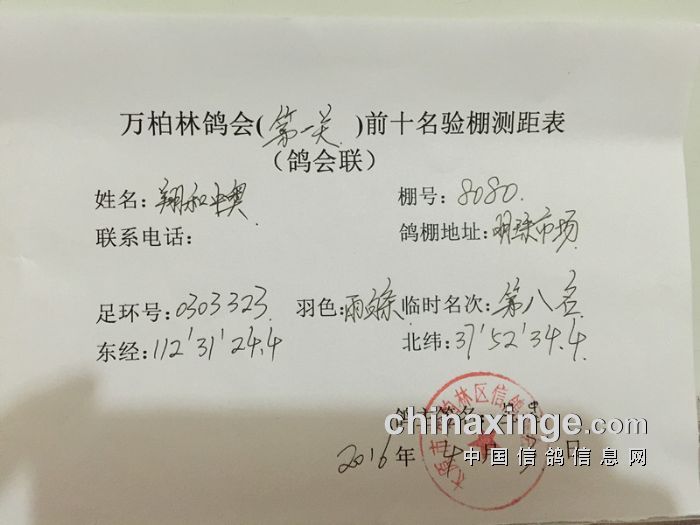 万柏林鸽会(第一关)前十名验棚测距表
(鸽会联)
姓名:翔和中奥 棚号:8080.
联系电话: 鸽棚地址:明珠市场
足环号:0303323. 羽色:雨 临时名次:第八名
东经:112'31'24.4 北纬:37'52'34.4.
鸽主签名:
2016年 月 日
林区信鸽
chinaxinge.com
中国信鸽信息网